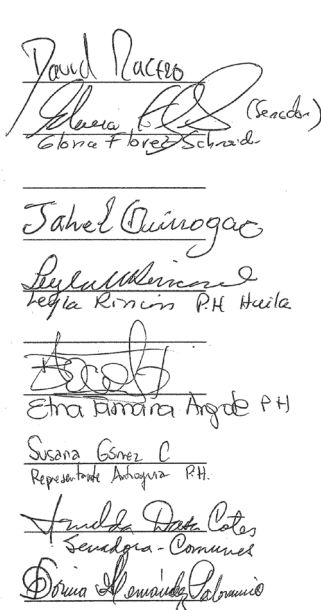 David Racero
Gloria Flórez (Senador)
Gloria Florez Schneider
Jahel Quiroga
Leyla Rincón
Leyla Rincón P.H Huila
Etna Tamara Argote PH
Susana Gómez C
Representante Antioquia P.H.
Imelda Daza Cotes
Senadora - Comunes
Sonia Hernández Palomino